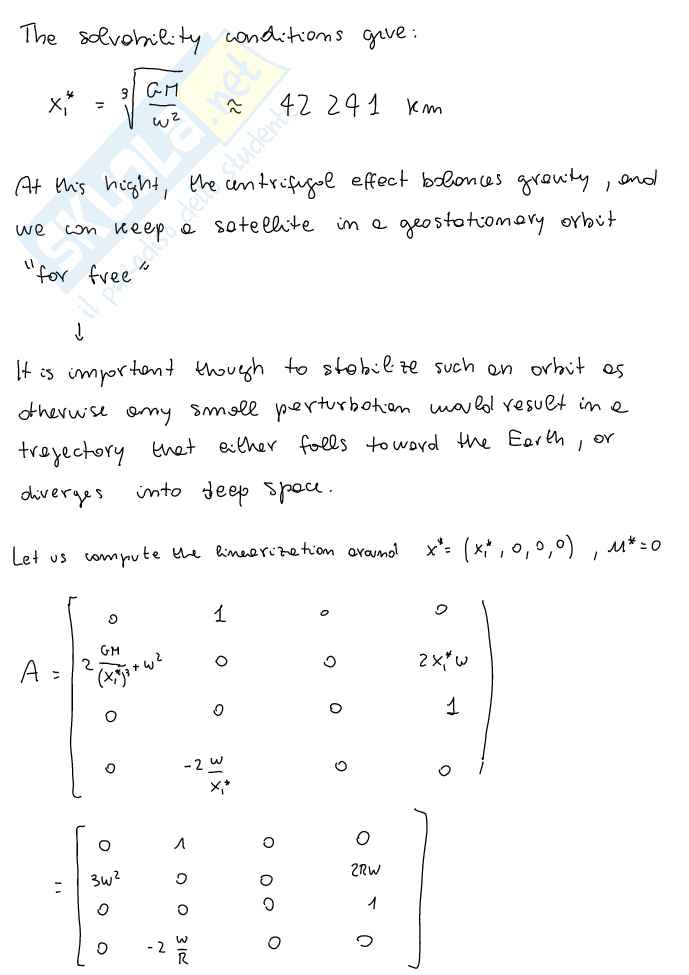 The solvability conditions give:
x₁* = ∛(GM/w²) ≈ 42 241 km
At this hight, the centrifugal effect balances gravity, and
we can keep a satellite in a geostationary orbit
"for free"
↓
It is important though to stabilize such an orbit as
otherwise any small perturbation would result in a
trajectory that either falls toward the Earth, or
diverges into deep space.
Let us compute the linearization around x* = (x₁*, 0, 0, 0), u* = 0
A = [ 0 1 0 0
2 GM/(x₁*)³ + w² 0 0 2x₁*w
0 0 0 1
0 -2 w/x₁* 0 0 ]
= [ 0 1 0 0
3w² 0 0 2Rw
0 0 0 1
0 -2 w/R 0 0 ]
SKUOLA.net
il paradiso dello studente